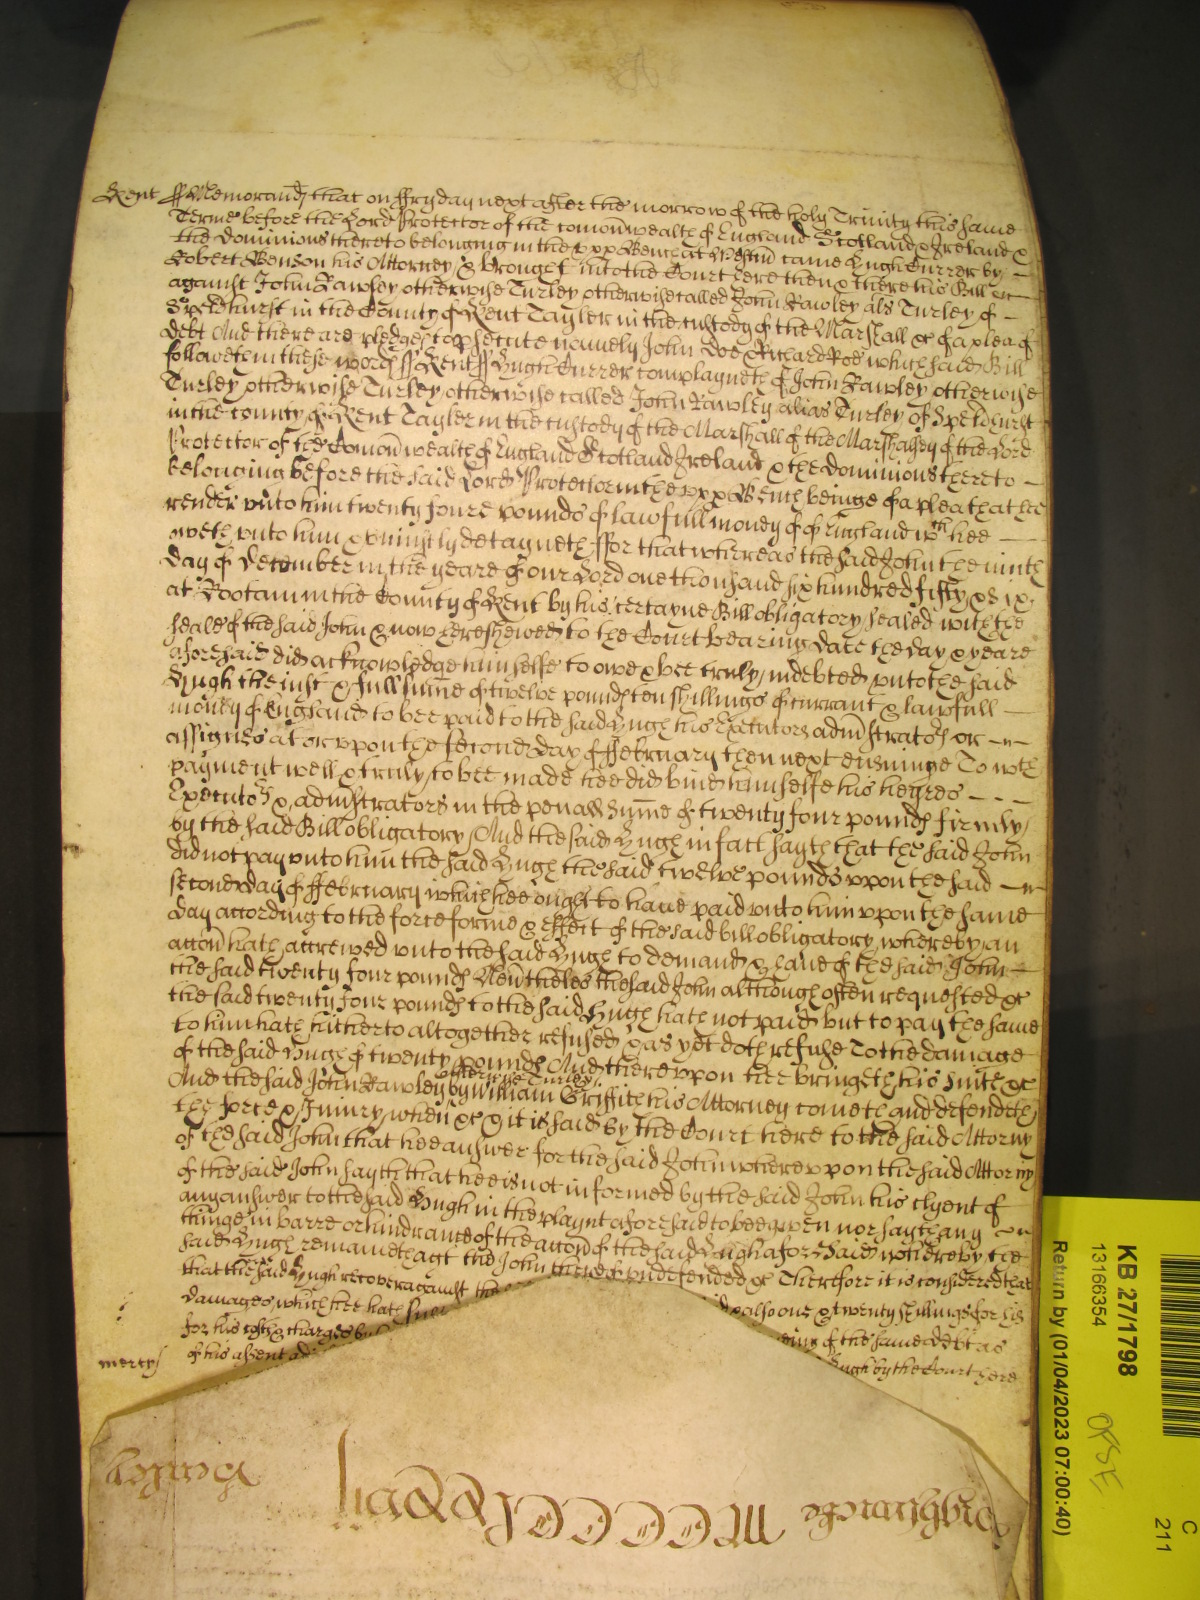 Kent ss Memorand that on ffryday next after the morrow of the holy Trinity this same
Terme before the Lord Protector of the comonwealth of England Scotland & Ireland &
the dominions thereto belonging in the vpp Bench at Westm came Hugh Currer by
Robert Benson his Attorney & brought into the Court here then & there his Bill
against John Rawley otherwise Turley otherwise called John Rawley als Turley of
Speldhurst in the County of Kent Tayler in the custody of the Marshall &c of a plea of
debt And there are pledges to psecute namely John Doe & Richard Roe which said Bill
followeth in these words ss Kent ss Hugh Currer complayneth of John Rawley otherwise
Turley otherwise Turley otherwise called John Rawley alias Turley of Speldhurst
in the county of Kent Tayler in the custody of the Marshall of the Marshalsey of the Lord
Protector of the Comonwealth of England Scotland Ireland & the dominions thereto
belonging before the said Lord Protector in the vpp Bench beinge of a plea that hee
render unto him twenty foure pounds of lawfull money of England wch hee
oweth unto him & uniustly detayneth ffor that whereas the said John the ninth
day of December in the yeare of our Lord one thousand six hundred fifty & six
at Rootam in the County of Kent by his certayne Bill obligatory sealed with the
seale of the said John & now here shewed to the Court bearing date the day & yeare
aforesaid did acknowledge himselfe to owe & bee truly indebted unto the said
Hugh the iust & full sume of twelve pounds ten shillings of currant & lawfull
money of England to bee paid to the said Hugh his Executors administrators or
assignes at or vpon the second day of ffebruary then next ensuinge To wch
payment well & truly to bee made hee did bind himselfe his heyres
Executors & administrators in the penall sume of twenty four pounds firmly
by the said Bill obligatory And the said Hugh in fact sayth that the said John
did not pay unto him the said Hugh the said twelve pounds vpon the said
second day of ffebruary which hee ought to have paid unto him vpon the same
day according to the force forme & effect of the said bill obligatory whereby an
accon hath accrewed unto the said Hugh to demand & have of the said John
the said twenty four pounds Nevertheles the said John although often requested &c
the said twenty four pounds to the said Hugh hath not paid but to pay the same
to him hath hitherto altogether refused & as yet doth refuse To the damage
of the said Hugh of twenty pounds And therevpon hee bringeth his suite &c
And the said John Rawley otherwise Turley by William Griffith his Attorney cometh and defendeth
the force & Iniury when &c & it is said by the Court here to the said Attorny
of the said John that hee answer for the said John wherevpon the said Attorny
of the said John sayth that hee is not informed by the said John his clyent of
any answer to the said Hugh in the playnt aforesaid to bee given nor sayth any
thinge in barre or hindrance of the accon of the said Hugh aforesaid whereby the
said Hugh remayneth agt the John thereof undefended &c Therefore it is considered
that the said Hugh recover against the
damages which hee hath also one & twenty shillings for his
for his costs & charges by of the same debt as
mercy of his assent Hugh by the Court here
KB 27/1798
13166354
Return by (01/04/2023 07:00:40)
C
211